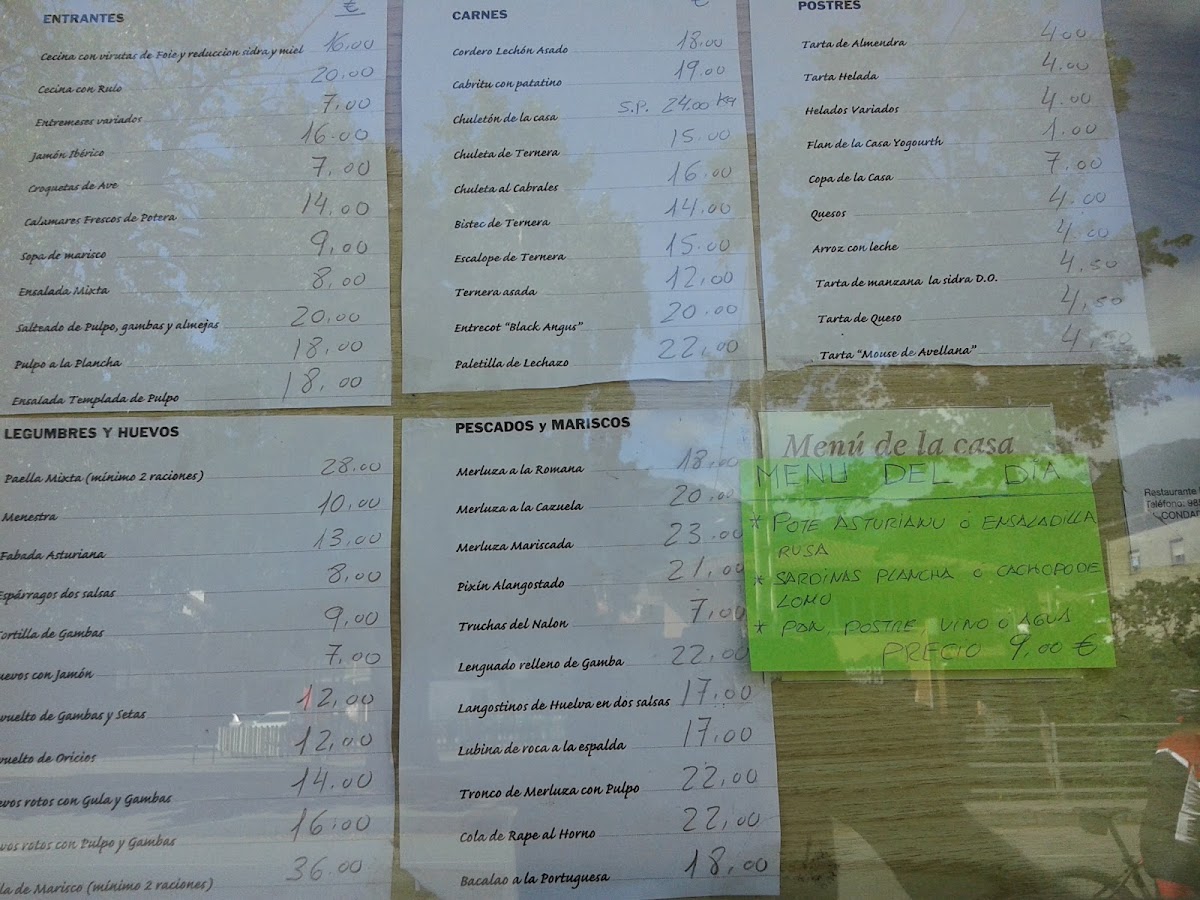 ENTRANTES €
Cecina con virutas de Foie y reduccion sidra y miel 16,00
Cecina con Rulo 20.00
Entremeses variados 7.00
Jamón Ibérico 16.00
Croquetas de Ave 7,00
Calamares Frescos de Potera 14.00
Sopa de marisco 9,00
Ensalada Mixta 8,00
Salteado de Pulpo, gambas y almejas 20.00
Pulpo a la Plancha 18,00
Ensalada Templada de Pulpo 18,00
CARNES €
Cordero Lechón Asado 18.00
Cabritu con patatino 19.00
Chuletón de la casa S.P. 24.00 Kg
Chuleta de Ternera 15.00
Chuleta al Cabrales 16.00
Bistec de Ternera 14.00
Escalope de Ternera 15.00
Ternera asada 12,00
Entrecot “Black Angus” 20.00
Paletilla de Lechazo 22,00
POSTRES
Tarta de Almendra 4.00
Tarta Helada 4.00
Helados Variados 4.00
Flan de la Casa Yogourth 1.00
Copa de la Casa 7,00
Quesos 4.00
Arroz con leche 4.00
Tarta de manzana la sidra D.O. 4,50
Tarta de Queso 4,50
Tarta “Mouse de Avellana” 4,50
LEGUMBRES Y HUEVOS
Paella Mixta (mínimo 2 raciones) 28.00
Menestra 10,00
Fabada Asturiana 13.00
Espárragos dos salsas 8,00
ortilla de Gambas 9,00
uevos con Jamón 7,00
vuelto de Gambas y Setas 12,00
vuelto de Oricios 12,00
evos rotos con Gula y Gambas 14.00
vos rotos con Pulpo y Gambas 16.00
la de Marisco (mínimo 2 raciones) 36.00
PESCADOS y MARISCOS
Merluza a la Romana 18,00
Merluza a la Cazuela 20.00
Merluza Mariscada 23.00
Pixín Alangostado 21,00
Truchas del Nalon 7,00
Lenguado relleno de Gamba 22,00
Langostinos de Huelva en dos salsas 17.00
Lubina de roca a la espalda 17.00
Tronco de Merluza con Pulpo 22,00
Cola de Rape al Horno 22,00
Bacalao a la Portuguesa 18,00
Menú de la casa
MENU DEL DÍA
* POTE ASTURIANU O ENSALADILLA
RUSA
* SARDINAS PLANCHA O CACHOPO DE
LOMO
* PAN, POSTRE, VINO O AGUA
PRECIO 9,00 €
Restaurante
Teléfono: 98
CONDA